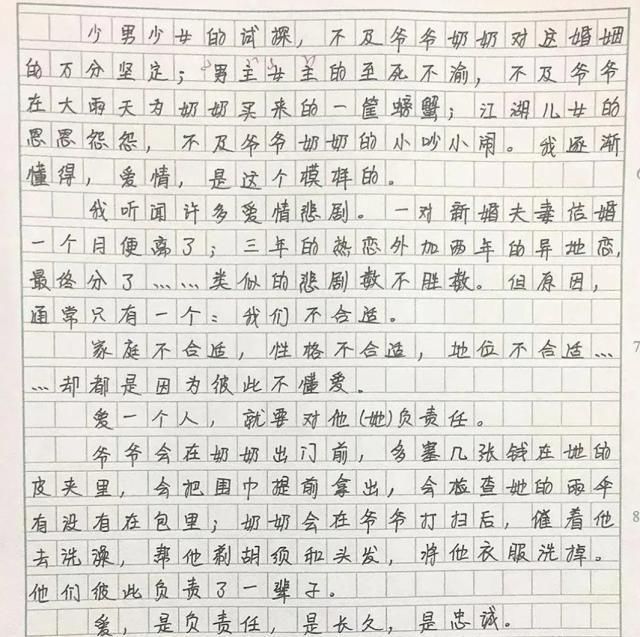 少男少女的试探，不及爷爷奶奶对这婚姻
的万分坚定；男主女主的至死不渝，不及爷爷
在大雨天为奶奶买来的一筐螃蟹；江湖儿女的
恩恩怨怨，不及爷爷奶奶的小吵小闹。我逐渐
懂得，爱情，是这个模样的。
我听闻许多爱情悲剧。一对新婚夫妻结婚
一个月便离了；三年的热恋外加两年的异地恋，
最终分了……类似的悲剧数不胜数。但原因，
通常只有一个：我们不合适。
家庭不合适，性格不合适，地位不合适…
…却都是因为彼此不懂爱。
爱一个人，就要对他(她)负责任。
爷爷会在奶奶出门前，多塞几张钱在她的
皮夹里，会把围巾提前拿出，会检查她的雨伞
有没有在包里；奶奶会在爷爷打扫后，催着他
去洗澡，帮他剃胡须和头发，将他衣服洗掉。
他们彼此负责了一辈子。
爱，是负责任，是长久，是忠诚。
7
8